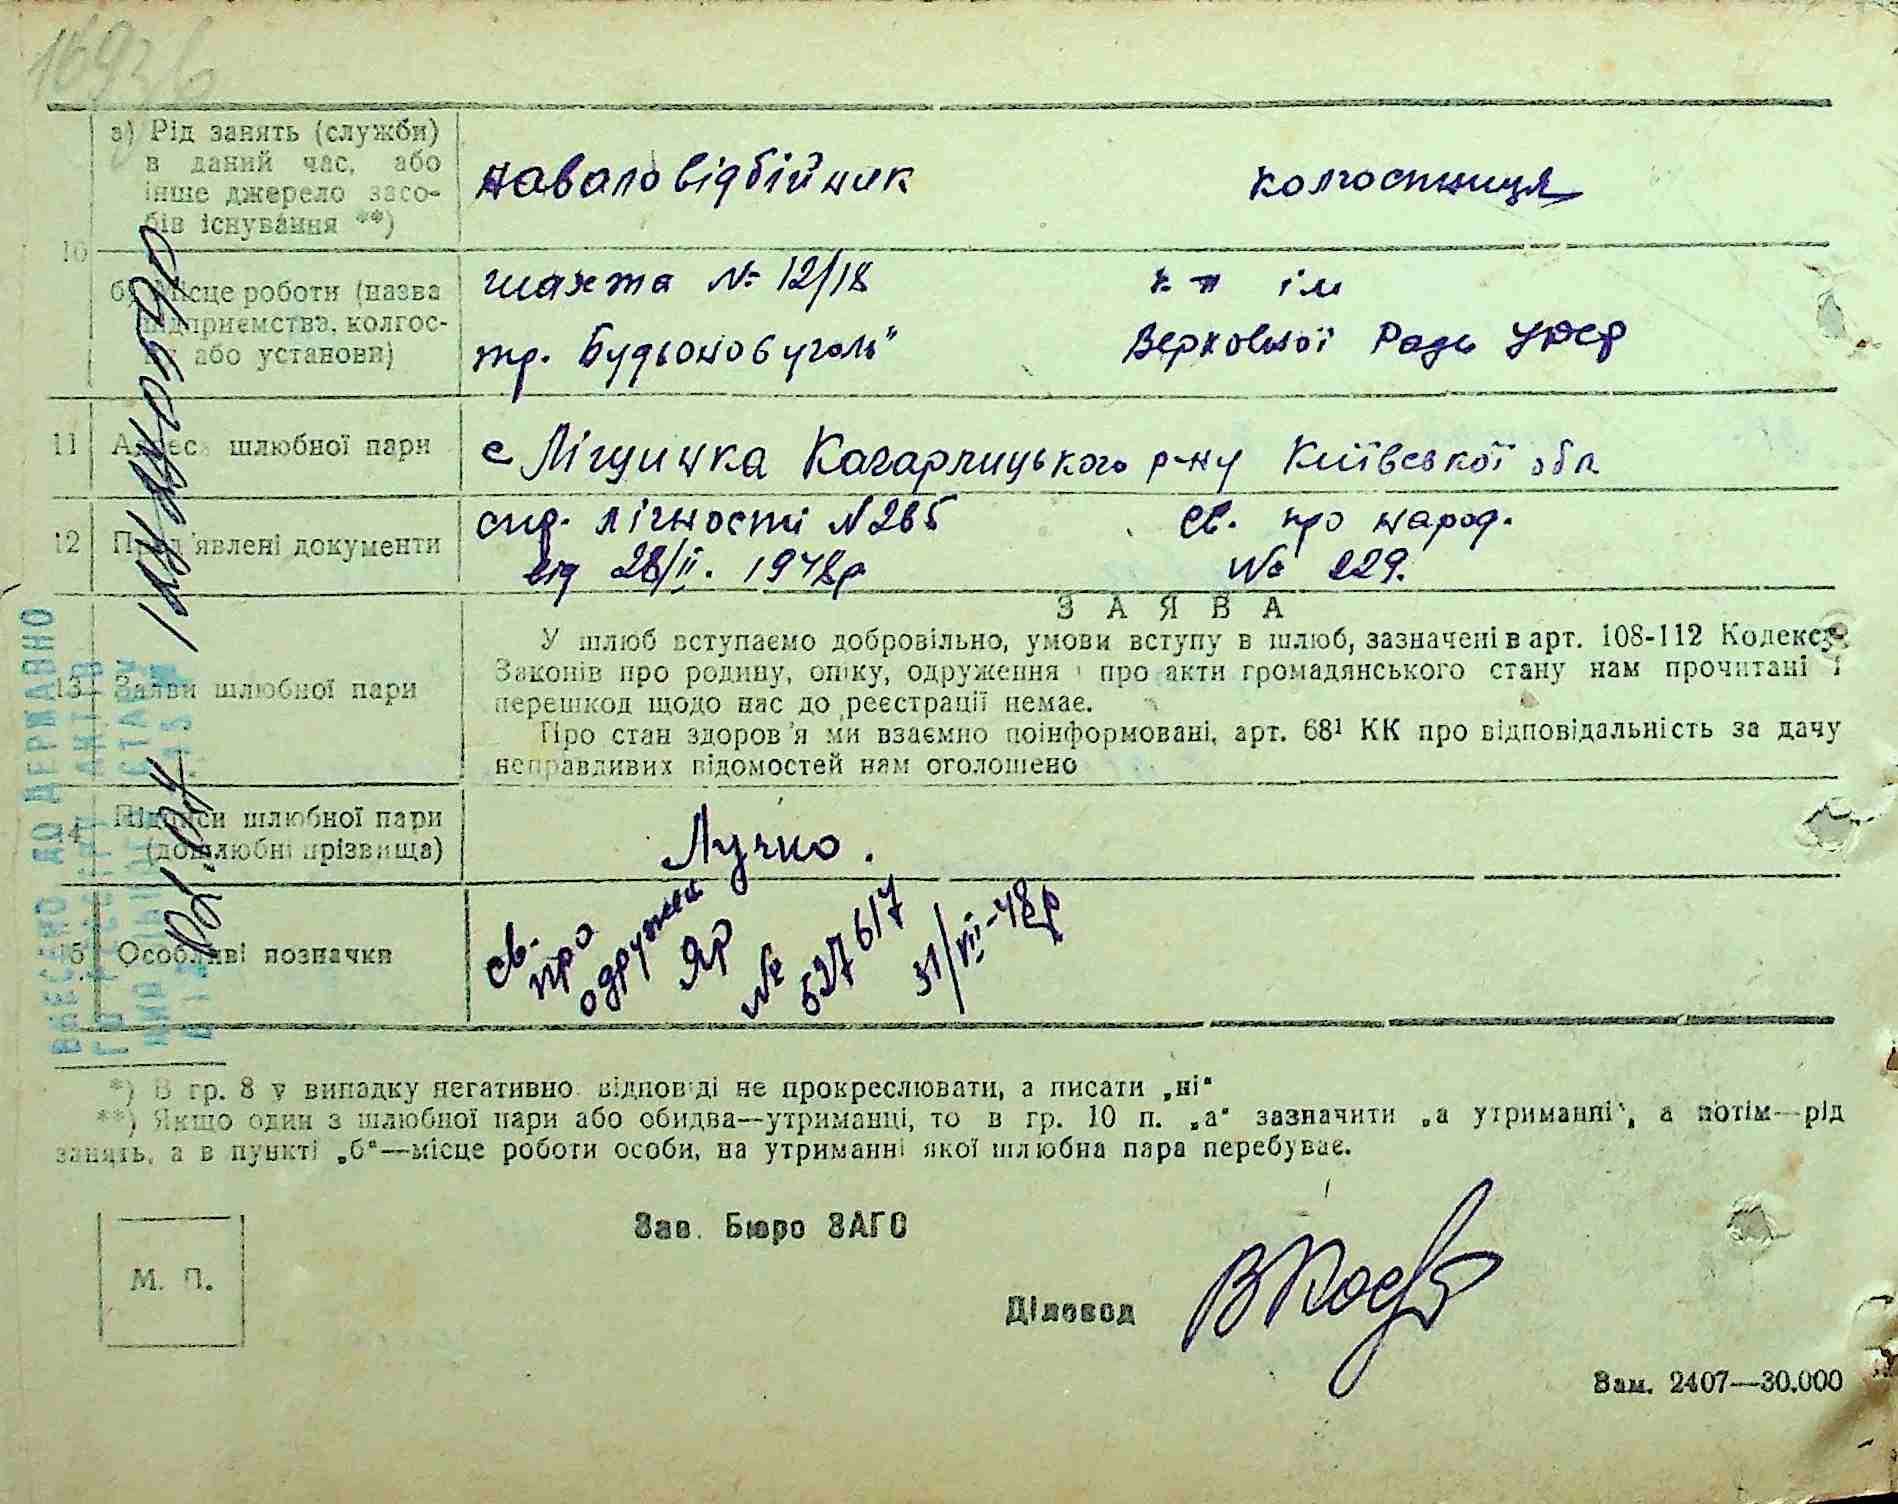 16936
а) Рід занять (служби) в даний час, або інше джерело засобів існування **)
наваловідбійник колгоспниця
10
б) Місце роботи (назва підприємства, колгоспу або установи)
шахта № 12/18 к-п ім
тр. Будьоновуголь" Верховної Ради УРСР
11 Адреса шлюбної пари
с Ліщинка Кагарлицького р-ну Київської обл
12 Пред'явлені документи
спд. лічності N 265 св. про народ.
від 28/II. 1948р No 229.
13 Заяви шлюбної пари
ЗАЯВА
У шлюб вступаємо добровільно, умови вступу в шлюб, зазначені в арт. 108-112 Кодексу
Законів про родину, опіку, одруження і про акти громадянського стану нам прочитані і
перешкод щодо нас до реєстрації немає.
Про стан здоров'я ми взаємно поінформовані, арт. 68¹ КК про відповідальність за дачу
неправдивих відомостей нам оголошено
14 Підписи шлюбної пари
(дошлюбні прізвища)
Лучко.
15 Особливі позначки
св. про одруження ЯР № 527617 31/VII-48р
ВНЕСЕНО ДО ДЕРЖАВНО
*) В гр. 8 у випадку негативно відповіді не прокреслювати, а писати „ні“
**) Якщо один з шлюбної пари або обидва—утриманці, то в гр. 10 п. „а“ зазначити „а утриманні“, а потім—рід
занять, а в пункті „б“—місце роботи особи, на утриманні якої шлюбна пара перебуває.
Зав. Бюро ЗАГС
М. П.
Діловод
Зам. 2407—30.000